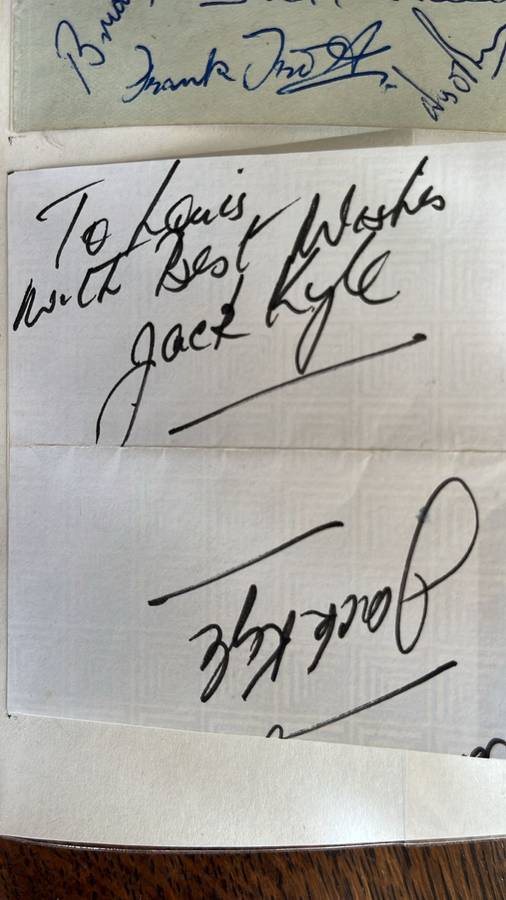 Frank Trott
To Louis
With Best Wishes
Jack Kyle
Jack Kyle